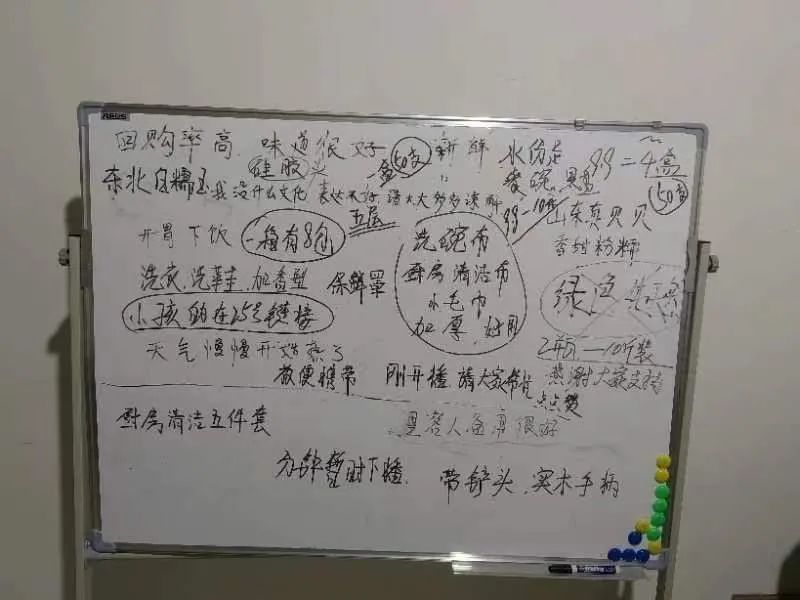 AEOS
回购率高 味道很好 50支 新鲜 水份足 99=4盒
硅胶头 50支
东北白糯玉 我没什么文化 表达不好 请大大多多谅解 99-10包 山东真贝贝
五层
开胃下饮 一箱有8包 洗碗布 香甜粉糯
洗衣.洗鞋.加香型 保鲜罩 厨房清洁布 绿色
小孩的在25号链接 小毛巾
加厚.好用
天气慢慢开始热了 2种一10斤装
方便携带 刚开播 请大家帮忙 感谢大家支持
点点赞
厨房清洁五件套
分钟暂时下播. 带铲头.实木手柄